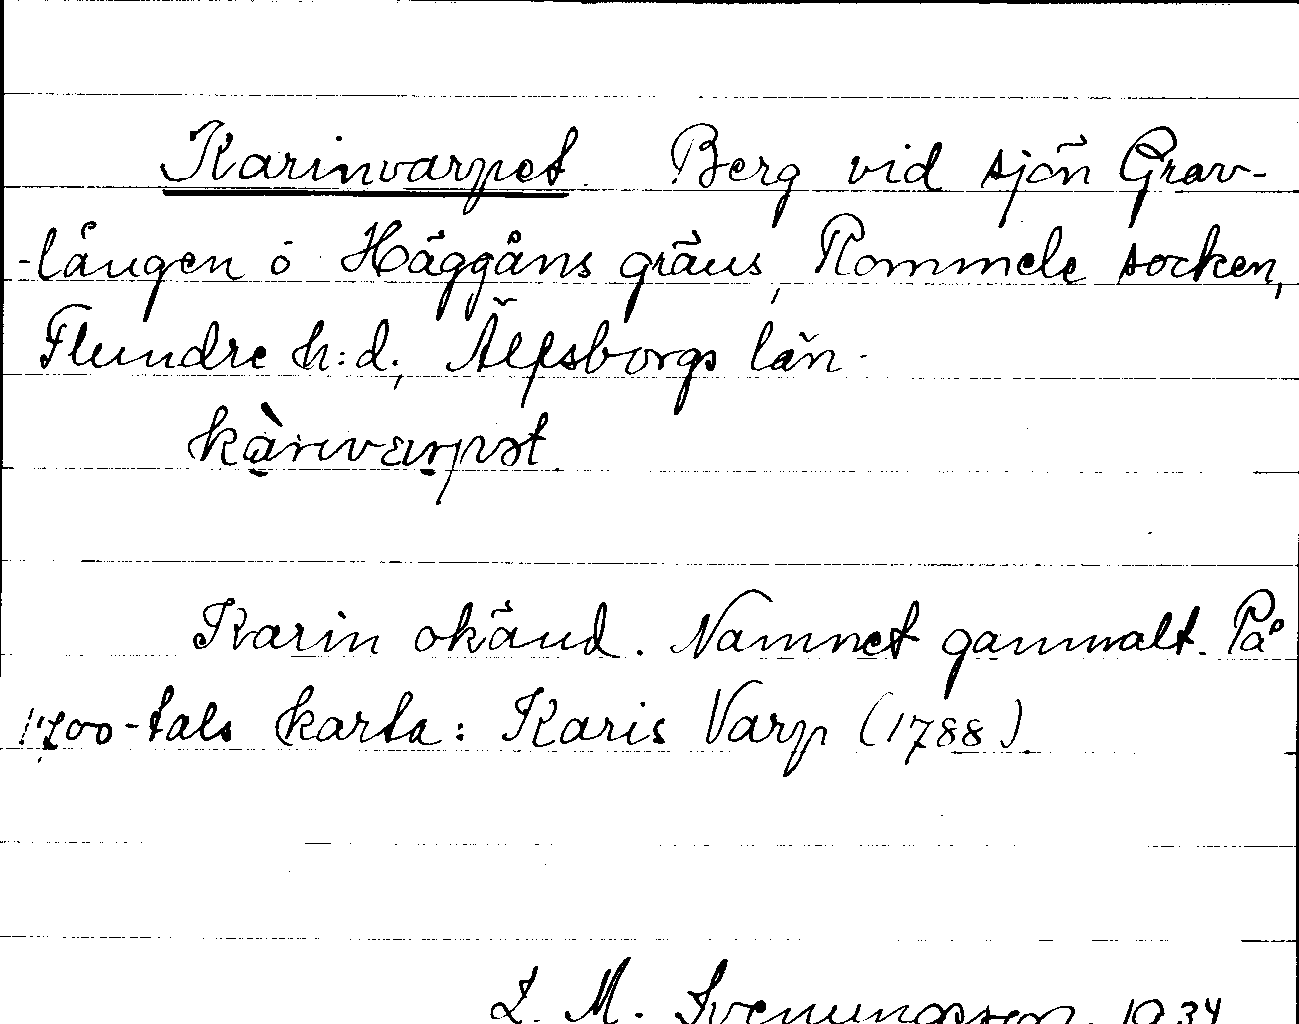 Karinvarpet. Berg vid sjön Grav-
-lången å Häggåns gräns, Rommele socken,
Flundre h:d., Älfsborgs län.
kàrɩvarpət.
Karin okänd. Namnet gammalt. På
1700-tals karta: Karis Varp (1788).
L. M. Svenungsson. 1934